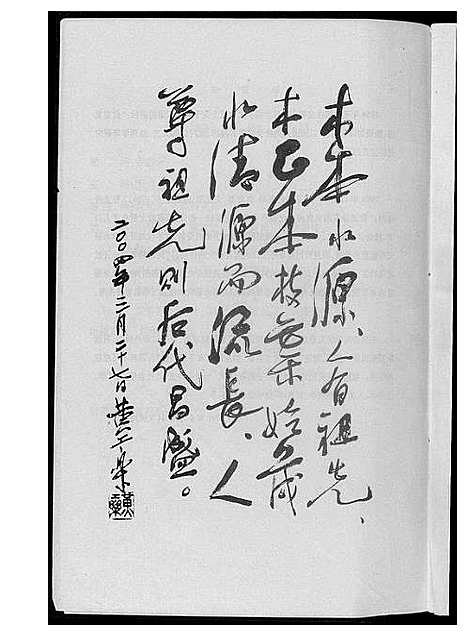 木本水源、人有祖先、
木正本枝叶始茂
水清源而流长、人
尊祖先则后代昌盛。
二〇〇四年三月二十七日黄